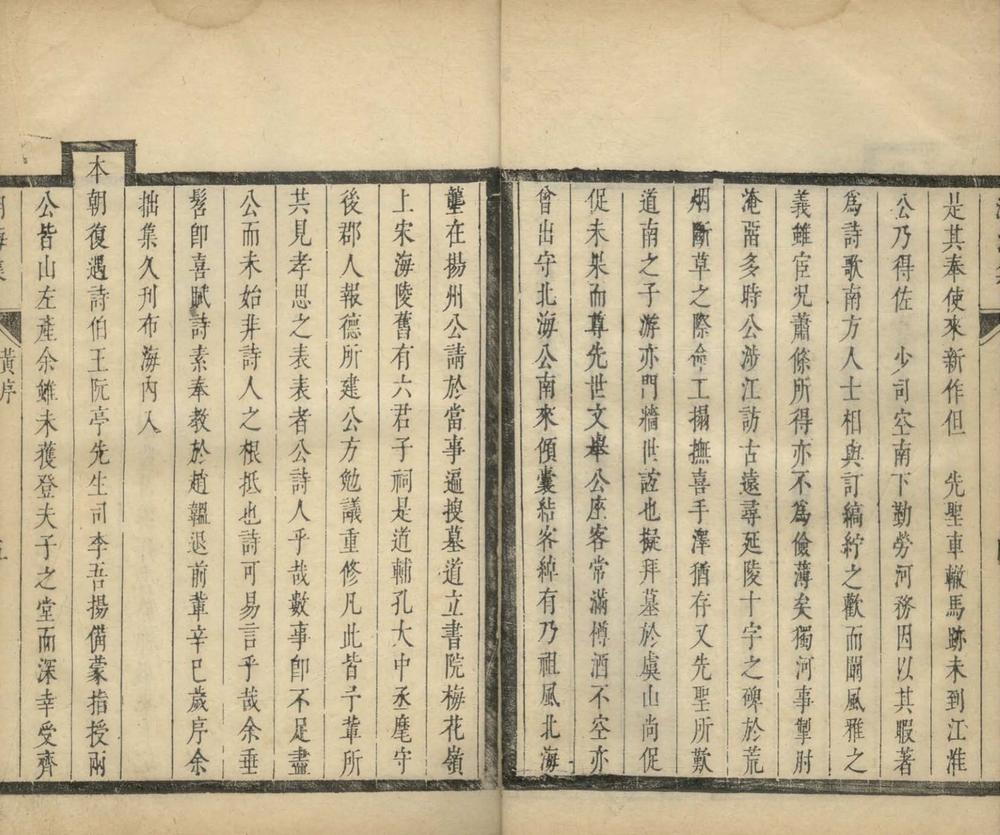 是其奉使來新作但　先聖車轍馬跡未到江淮
公乃得佐　少司空南下勤勞河務因以其暇著
為詩歌南方人士相與訂縞紵之歡而闡風雅之
義雖宦況蕭條所得亦不為儉薄矣獨河事掣肘
淹畱多時公涉江訪古遠尋延陵十字之碑於荒
烟斷草之際命工搨撫喜手澤猶存又先聖所歎
道南之子游亦門牆世誼也擬拜墓於虞山尚促
促未果而尊先世文舉公座客常滿罇酒不空亦
曾出守北海公南來傾囊結客綽有乃祖風北海
壟在揚州公請於當事逼搜墓道立書院梅花嶺
上宋海陵舊有六君子祠是道輔孔大中丞麾守
後郡人報德所建公方勉議重修凡此皆予輩所
共見孝思之表表者公詩人乎哉數事卽不足盡
公而未始非詩人之根抵也詩可易言乎哉余垂
髫卽喜賦詩素奉教於趙韞退前輩辛巳歲序余
拙集久刊布海內入
本朝復遇詩伯王阮亭先生司李吾揚備蒙指授兩
公皆山左產余雖未獲登夫子之堂而深幸受齊
湖海集
黃序
五